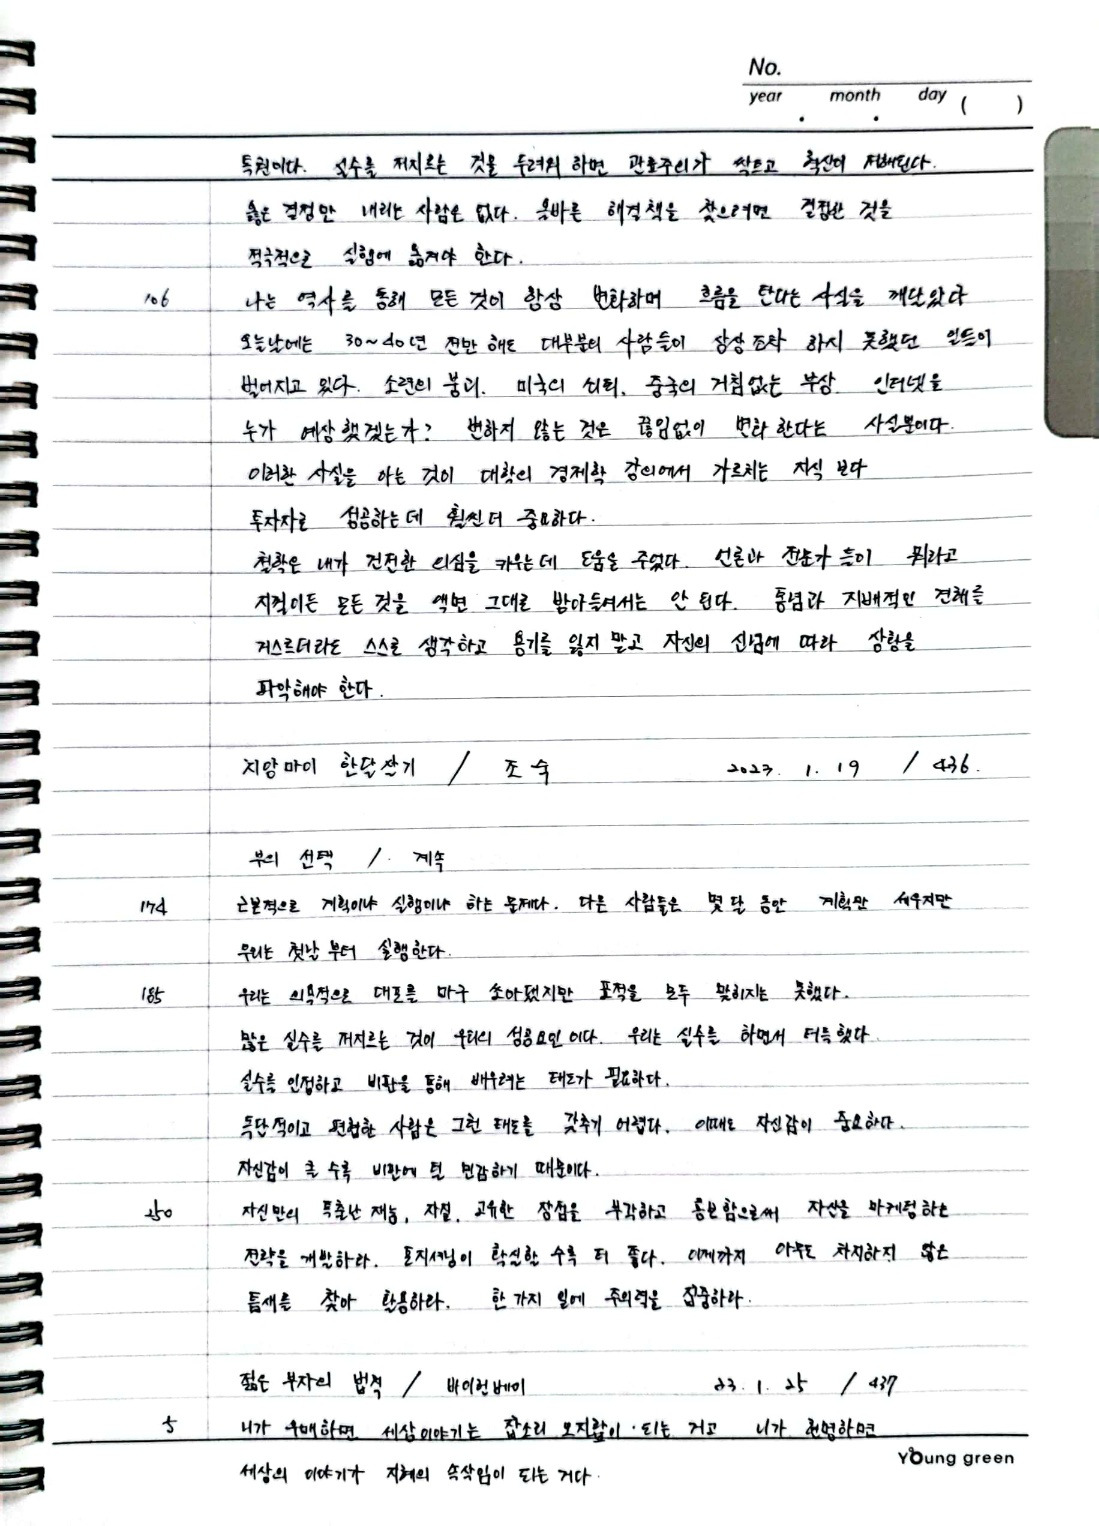 No.
year . month . day ( )
특권이다. 실수를 저지르는 것을 두려워 하면 관료주의가 싹트고 혁신이 저해된다.
옳은 결정만 내리는 사람은 없다. 올바른 해결책을 찾으려면 결정한 것을
적극적으로 실험에 옮겨야 한다.
106 나는 역사를 통해 모든 것이 항상 변화하며 흐름을 탄다는 사실을 깨달았다
오늘날에는 30~40년 전만 해도 대부분의 사람들이 상상조차 하지 못했던 일들이
벌어지고 있다. 소련의 붕괴. 미국의 쇠퇴, 중국의 거침없는 부상. 인터넷을
누가 예상했겠는가? 변하지 않는 것은 끊임없이 변화한다는 사실뿐이다.
이러한 사실을 아는 것이 대학의 경제학 강의에서 가르치는 지식 보다
투자자로 성공하는데 훨씬 더 중요하다.
철학은 내가 건전한 의심을 키우는데 도움을 주었다. 언론과 전문가 들이 뭐라고
지껄이든 모든 것을 액면 그대로 받아들여서는 안 된다. 통념과 지배적인 견해를
거스르더라도 스스로 생각하고 용기를 잃지 말고 자신의 신념에 따라 상황을
파악해야 한다.
치앙마이 한달살기 / 조숙 2023. 1. 19 / 436.
부의 선택 / 계속
174 근본적으로 계획이냐 실행이냐 하는 문제다. 다른 사람들은 몇 달 동안 계획만 세우지만
우리는 첫날부터 실행한다.
185 우리는 의욕적으로 대포를 마구 쏘아댔지만 표적을 모두 맞히지는 못했다.
많은 실수를 저지르는 것이 우리의 성공요인이다. 우리는 실수를 하면서 터득했다.
실수를 인정하고 비판을 통해 배우려는 태도가 필요하다.
독단적이고 편협한 사람은 그런 태도를 갖추기 어렵다. 이때도 자신감이 중요하다.
자신감이 클 수록 비판에 덜 민감하기 때문이다.
250 자신만의 특출난 재능, 자질, 고유한 장점을 부각하고 홍보함으로써 자신을 마케팅하는
전략을 개발하라. 포지셔닝이 확실할 수록 더 좋다. 이제까지 아무도 차지하지 않은
틈새를 찾아 활용하라. 한 가지 일에 주의력을 집중하라.
젊은 부자의 법칙 / 바이런베이 23. 1. 25 / 437
5 니가 우매하면 세상이야기는 잡소리 오지랖이 되는 거고 니가 현명하면
세상의 이야기가 지혜의 속삭임이 되는 거다.
Young green